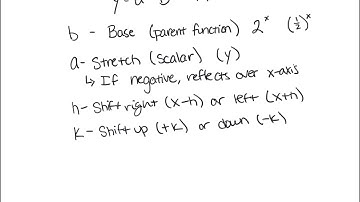 b - Base (parent function) 2^x (½)^x
a- Stretch (scalar) (y)
↳ If negative, reflects over x-axis
h- Shift right (x-h) or left (x+h)
k- Shift up (+k) or down (-k)